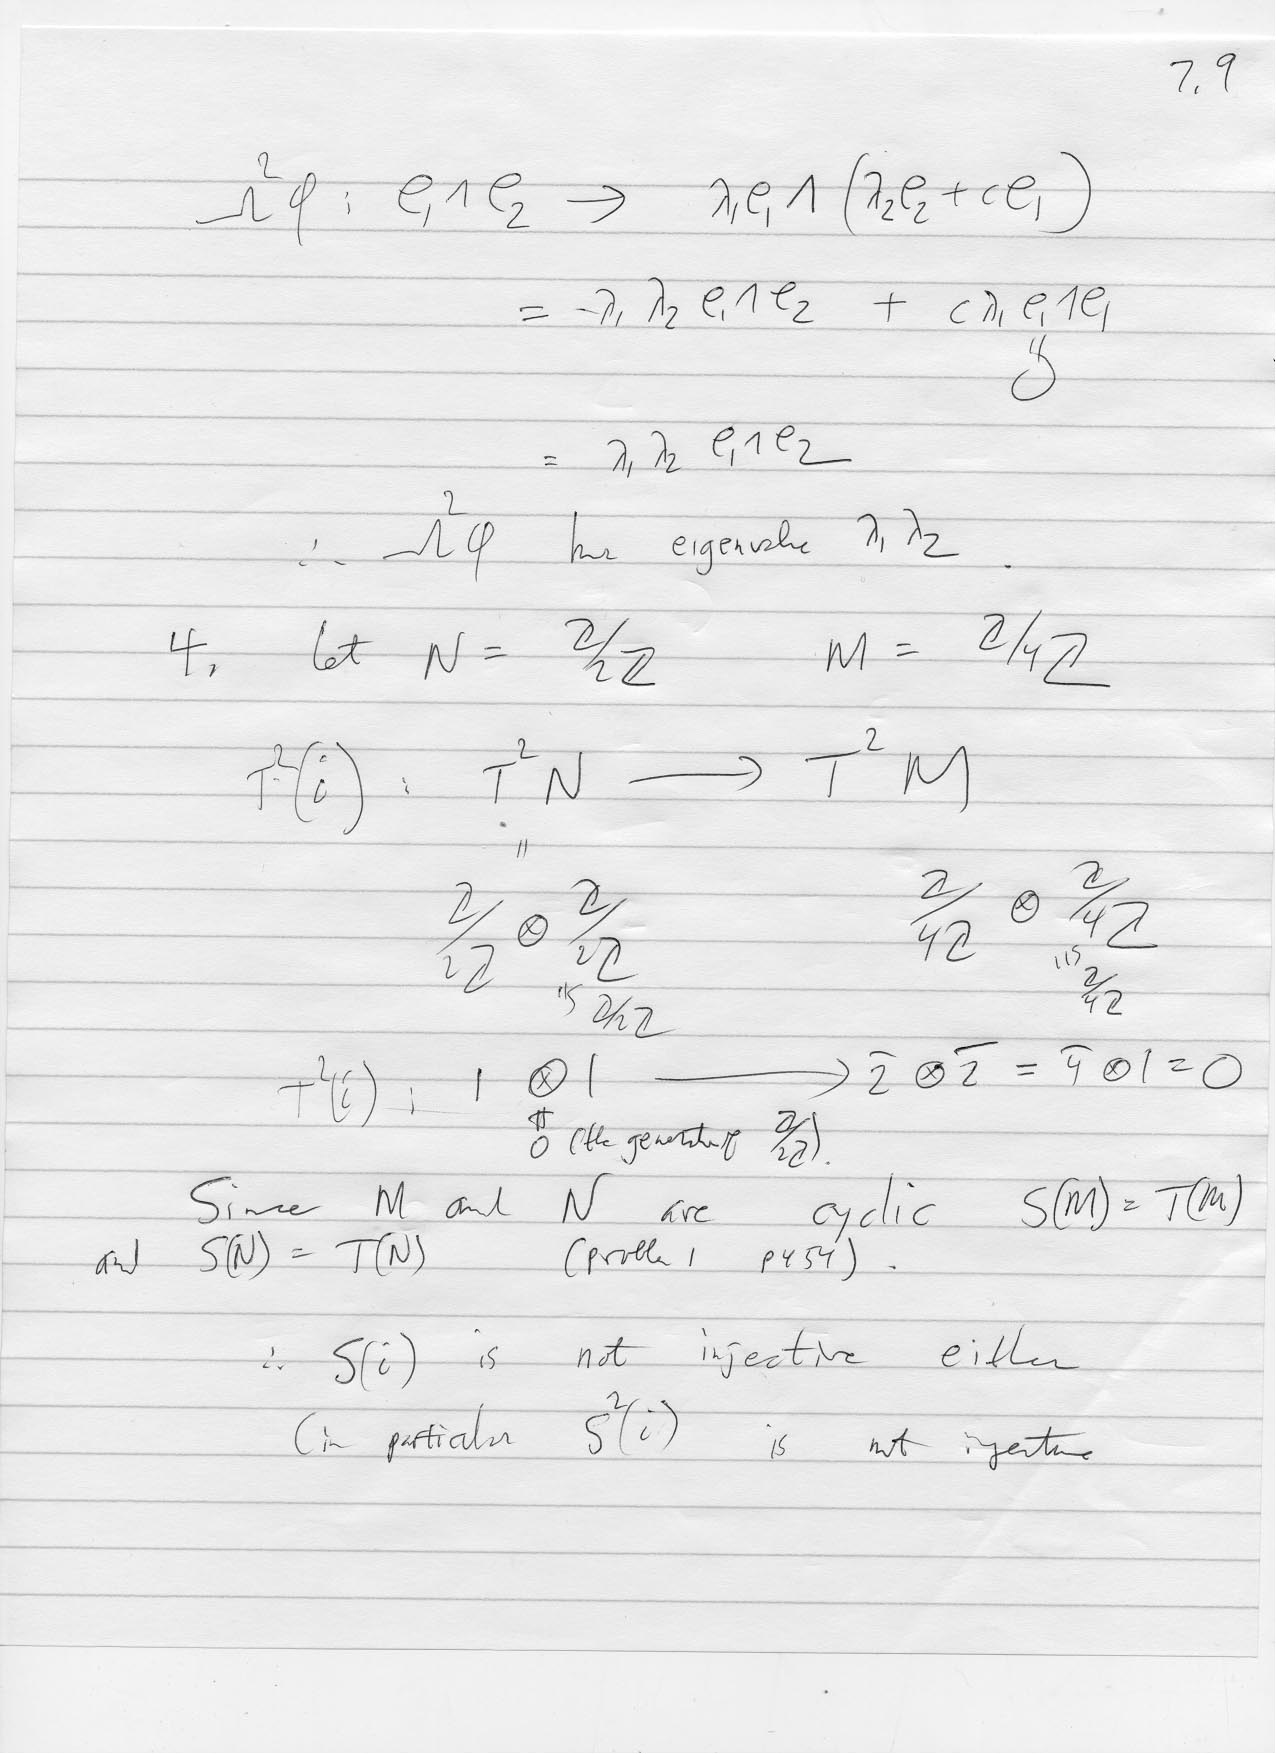 7.9
Λ²φ : e₁∧e₂ → λ₁e₁∧(λ₂e₂+ce₁)
= λ₁λ₂ e₁∧e₂ + cλ₁e₁∧e₁
"
0
= λ₁λ₂ e₁∧e₂
∴ Λ²φ has eigenvalue λ₁λ₂.
4. Let N = Z/2Z M = Z/4Z
T²(i) : T²N ⟶ T²M
"
Z/2Z ⊗ Z/2Z Z/4Z ⊗ Z/4Z
≅ Z/2Z ≅ Z/4Z
T²(i) : 1 ⊗ 1 ⟶ 2̄ ⊗ 2̄ = 4̄ ⊗ 1 = 0
≠ 0 (the generator of Z/2Z).
Since M and N are cyclic S(M) = T(M)
and S(N) = T(N) (problem 1 p454).
∴ S(i) is not injective either
(in particular S²(i) is not injective